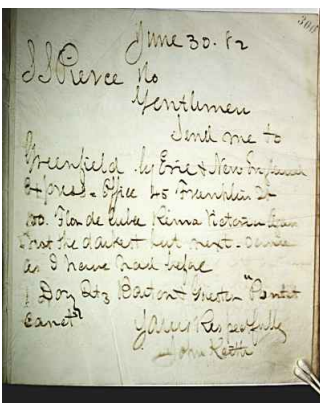 306
June 30. 82
S S Pierce Co
Gentlemen
Send me to
Greenfield by Erie & New England
Express. Office 45 Franklin St
100. Flor de Cuba Reina Victoria
Not the darkest but next. Same
as I have had before
1 Doz Qts Barton & Guestier "Pontet
Canet"
Yours Respectfully
John Keith